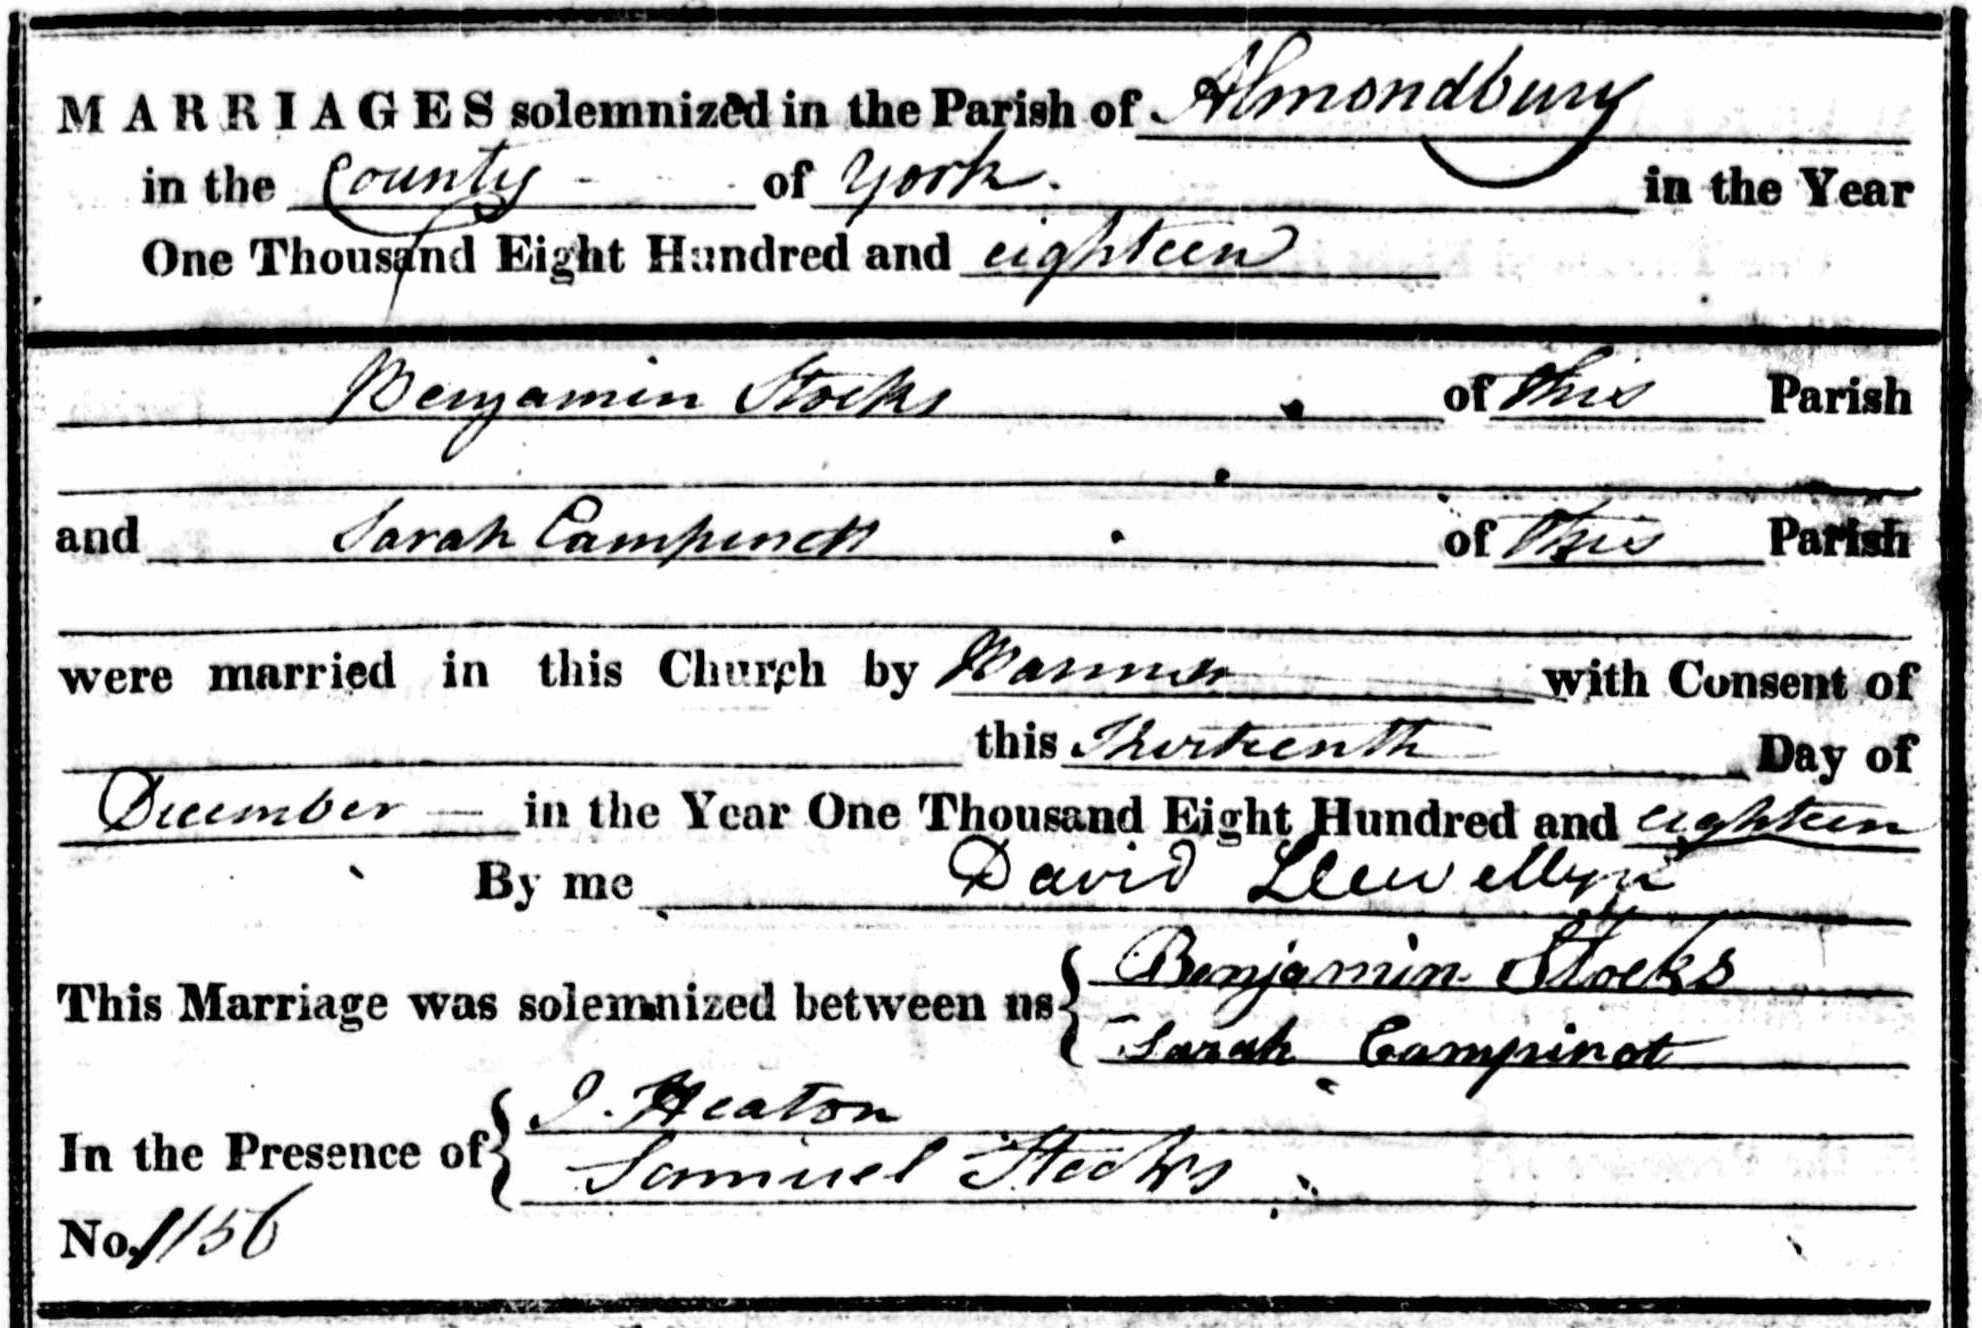 MARRIAGES solemnized in the Parish of Almondbury
in the County - of York. in the Year
One Thousand Eight Hundred and eighteen
Benjamin Stocks of this Parish
and Sarah Campinott of this Parish
were married in this Church by Banns with Consent of
this Thirteenth Day of
December — in the Year One Thousand Eight Hundred and eighteen
By me David Llewellyn
This Marriage was solemnized between us { Benjamin Stocks
Sarah Campinot
In the Presence of { J. Heaton
Samuel Stocks
No. 1156